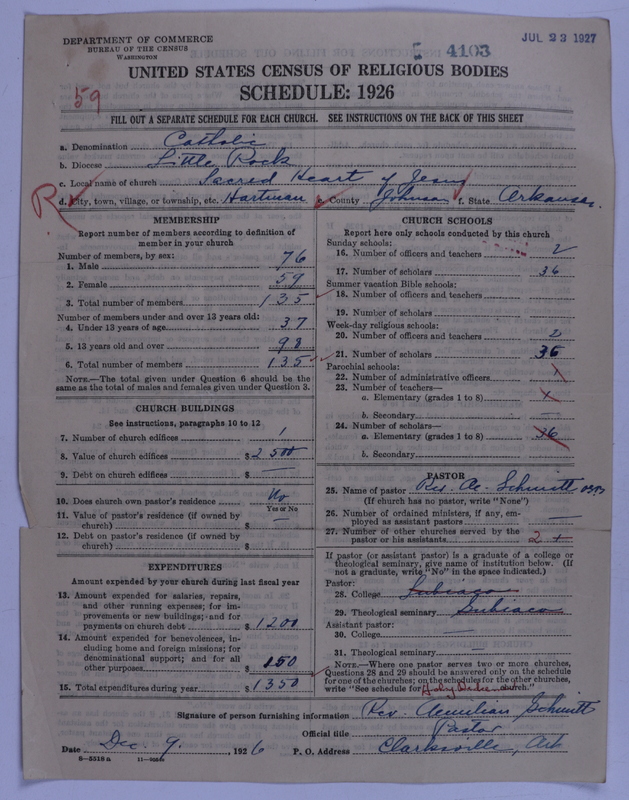 DEPARTMENT OF COMMERCE
BUREAU OF THE CENSUS
WASHINGTON
4103
JUL 23 1927
UNITED STATES CENSUS OF RELIGIOUS BODIES
SCHEDULE: 1926
59
FILL OUT A SEPARATE SCHEDULE FOR EACH CHURCH. SEE INSTRUCTIONS ON THE BACK OF THIS SHEET
a. Denomination Catholic
b. Diocese Little Rock
c. Local name of church Sacred Heart of Jesus
R d. City, town, village, or township, etc. Hartman e. County Johnson f. State Arkansas.
MEMBERSHIP
Report number of members according to definition of
member in your church
Number of members, by sex:
1. Male 76
2. Female 59
3. Total number of members 135
Number of members under and over 13 years old:
4. Under 13 years of age 37
5. 13 years old and over 98
6. Total number of members 135
NOTE.—The total given under Question 6 should be the
same as the total of males and females given under Question 3.
CHURCH BUILDINGS
See instructions, paragraphs 10 to 12
7. Number of church edifices 1
8. Value of church edifices $ 2500
9. Debt on church edifices $ —
10. Does church own pastor's residence No
Yes or No
11. Value of pastor's residence (if owned by
church) $ —
12. Debt on pastor's residence (if owned by
church) $
EXPENDITURES
Amount expended by your church during last fiscal year
13. Amount expended for salaries, repairs,
and other running expenses; for im-
provements or new buildings; and for
payments on church debt $ 1200
14. Amount expended for benevolences, in-
cluding home and foreign missions; for
denominational support; and for all
other purposes $ 150
15. Total expenditures during year $ 1350
CHURCH SCHOOLS
Report here only schools conducted by this church
Sunday schools:
16. Number of officers and teachers 2
17. Number of scholars 36
Summer vacation Bible schools:
18. Number of officers and teachers
19. Number of scholars
Week-day religious schools:
20. Number of officers and teachers 2
21. Number of scholars 36
Parochial schools:
22. Number of administrative officers
23. Number of teachers—
a. Elementary (grades 1 to 8)
b. Secondary —
24. Number of scholars—
a. Elementary (grades 1 to 8) 36
b. Secondary
PASTOR
25. Name of pastor Rev. Ae. Schmitt
(If church has no pastor, write "None")
26. Number of ordained ministers, if any, em-
ployed as assistant pastors —
27. Number of other churches served by the
pastor or his assistants 2 +
If pastor (or assistant pastor) is a graduate of a college or
theological seminary, give name of institution below. (If
not a graduate, write "No" in the space indicated.)
Pastor:
28. College Subiaco
29. Theological seminary Subiaco
Assistant pastor:
30. College —
31. Theological seminary —
NOTE.—Where one pastor serves two or more churches,
Questions 28 and 29 should be answered only on the schedule
for one of the churches; on the schedules for the other churches,
write "See schedule for Holy church."
Signature of person furnishing information Rev. Aemilian Schmitt
Official title Pastor
Date Dec. 9, 1926 P. O. Address Clarksville, Ark
8-5518 a